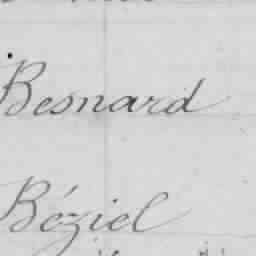 Besnard
Béziel